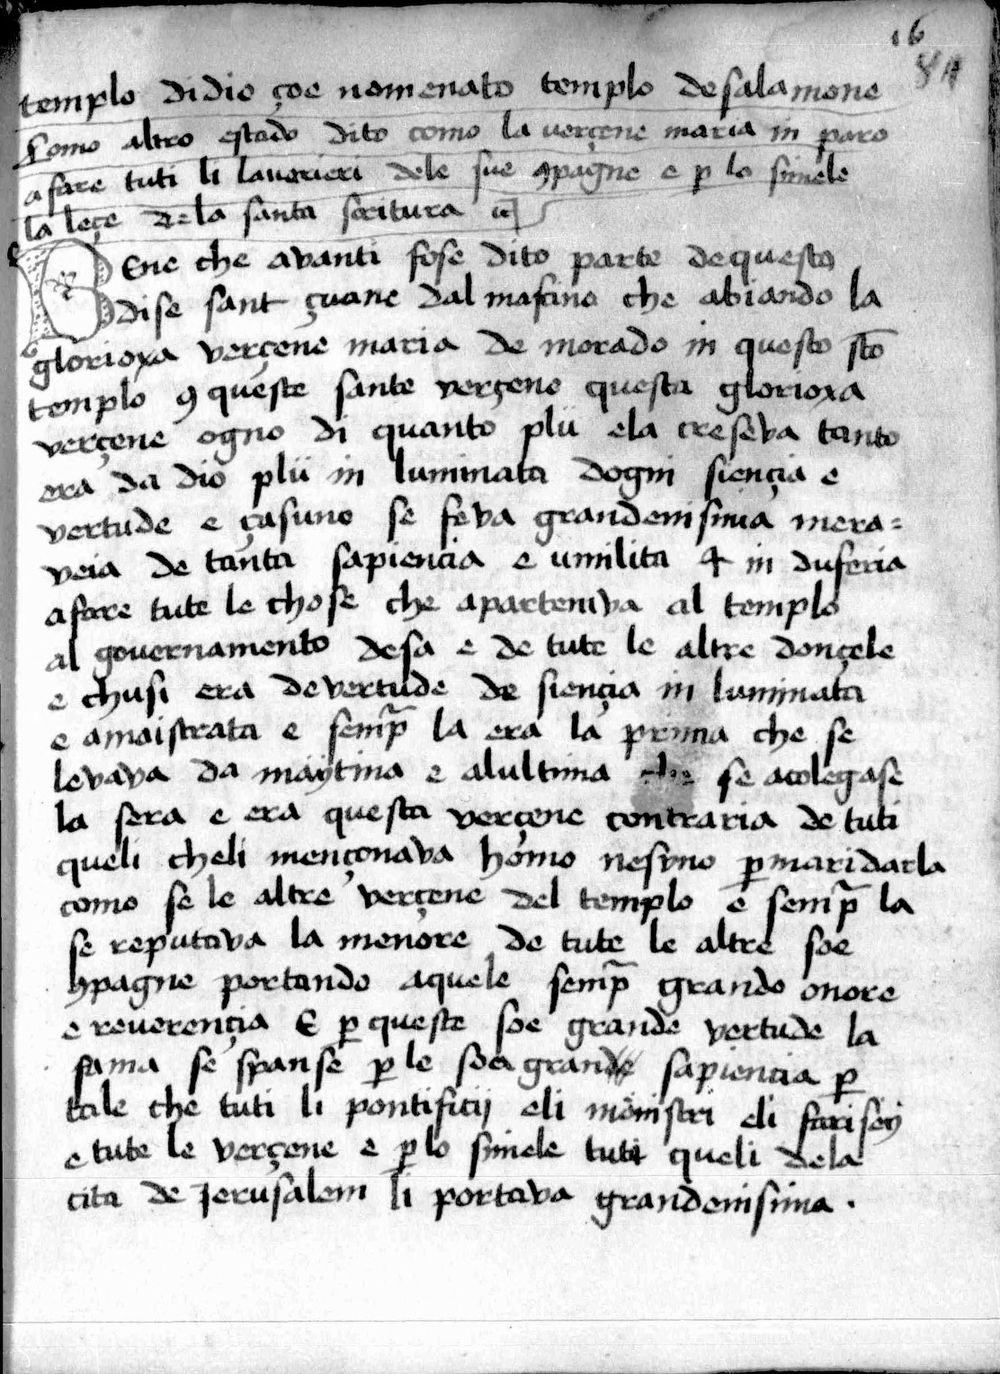 16
templo didio çoe nomenato templo desalamone
Como altro estado dito como la verçene maria in paro
afare tuti li lauorieri dele sue ꝯpagne e ꝑ lo simele
la leçe dela santa scritura
BEne che avanti fose dito parte dequesto
dise sant çuane dalmascino che abiando la
glorioxa verçene maria de morado in questo sto
templo ꝯ queste sante verçene questa glorioxa
verçene ogno di quanto plu ela creseva tanto
era da dio plu in luminata dogni siençia e
vertude e çasuno se feva grandenisima mera=
veia de tanta sapiencia e umilita & in duseria
afare tute le chose che aparteniva al templo
al governamento desa e de tute le altre donçele
e chusi era devertude de siençia in luminata
e amaistrata e semp la era la prima che se
levava da maytina e alultima che se acolegase
la sera e era questa verçene contraria de tuti
queli cheli mençonava homo nesuno ꝑ maridarla
como se le altre verçene del templo e semp la
se reputava la menore de tute le altre soe
ꝯpagne portando aquele semp grando onore
e reverençia E ꝑ queste soe grande vertude la
fama se spanse ꝑ le soa grande sapiencia ꝑ
tale che tuti li pontificij eli menistri eli farisey
e tute le verçene e ꝑ lo simele tuti queli dela
cita de Jerusalem li portava grandenisima .